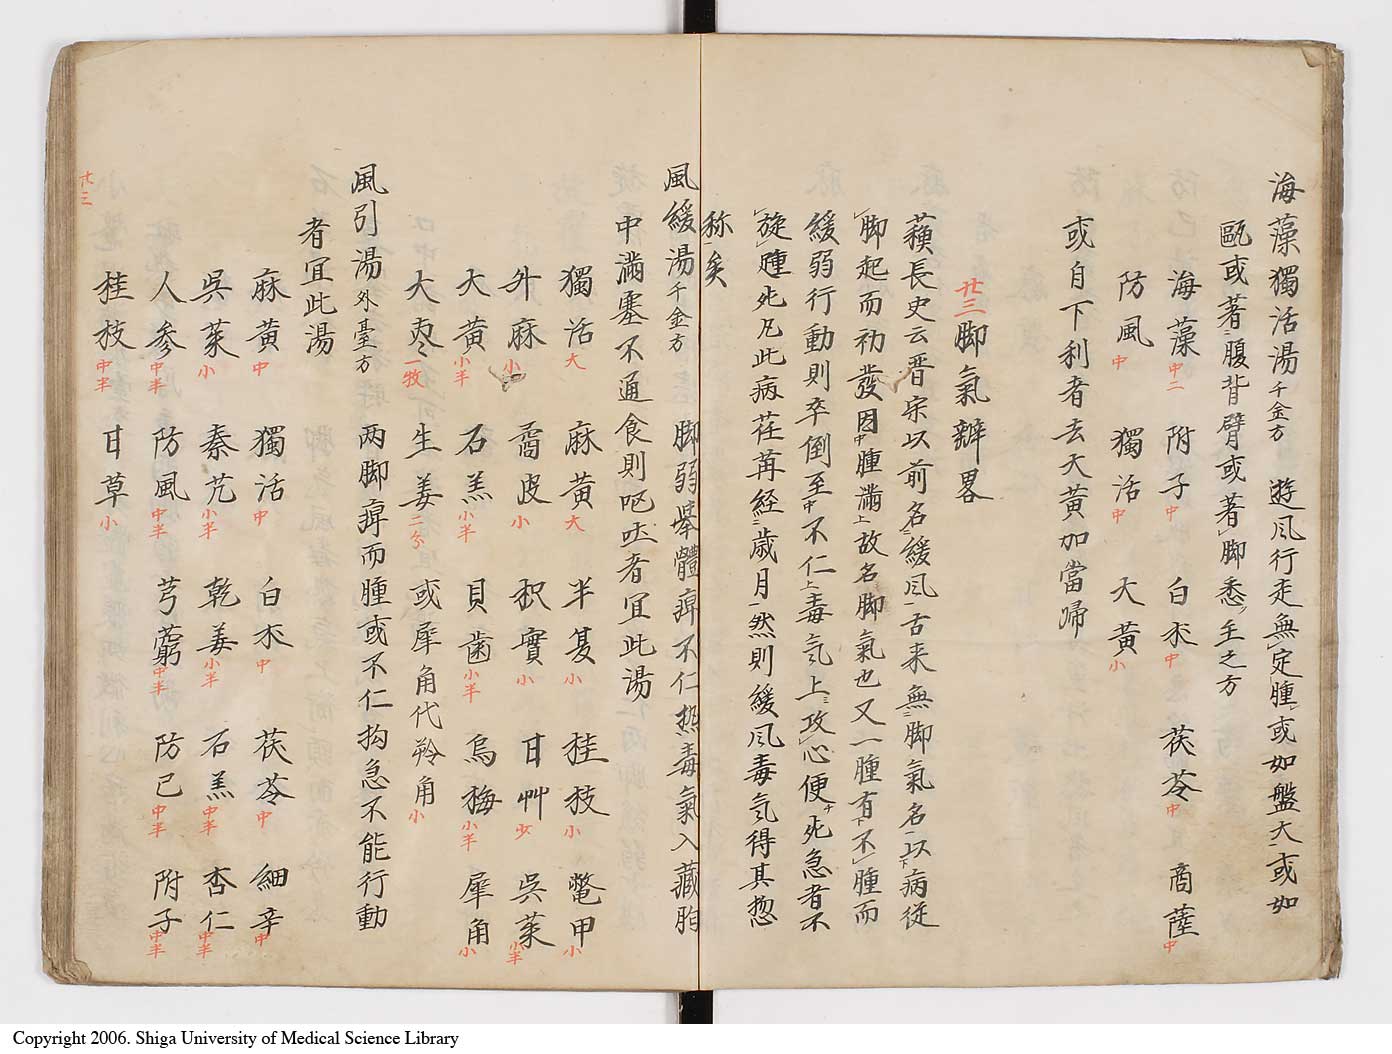 海藻獨活湯千金方 遊風行走無定腫或如盤大或如
甌或著腹背臂或著脚悉主之方
海藻中二 附子中 白朮中 茯苓中 商薩中
防風中 獨活中 大黄小
或自下利者去大黄加當歸
廿三脚氣辨畧
蘓長史云晋宗以前名緩風古来無脚氣名以病従
脚起而初發因中腫滿上故名脚氣也又一腫有下不腫而
緩弱行動則卒倒至中不仁上毒気上攻心便チ死急者不
旋踵死凡此病荏苒経歳月然則緩風毒気得其惣
称矣
風緩湯千金方 脚弱挙體痺不仁热毒氣入藏胸
中滿塞不通食則呕吐者宜此湯
獨活大 麻黄大 半夏小 桂枝小 鼈甲小
升麻小 橘皮小 枳實小 甘艸少 呉茱小半
大黄小半 石羔小半 貝歯小半 烏梅小半 犀角小
大枣一牧 生姜二分 或犀角代羚角小
風引湯外臺方 两脚痺而腫或不仁拘急不能行動
者宜此湯
麻黄中 獨活中 白朮中 茯苓中 細辛中
呉茱小 秦艽小半 乾姜小半 石羔中半 杏仁中半
人参中半 防風中半 芎藭中半 防已中半 附子中半
桂枝中半 甘草小
廿三
Copyright 2006. Shiga University of Medical Science Library